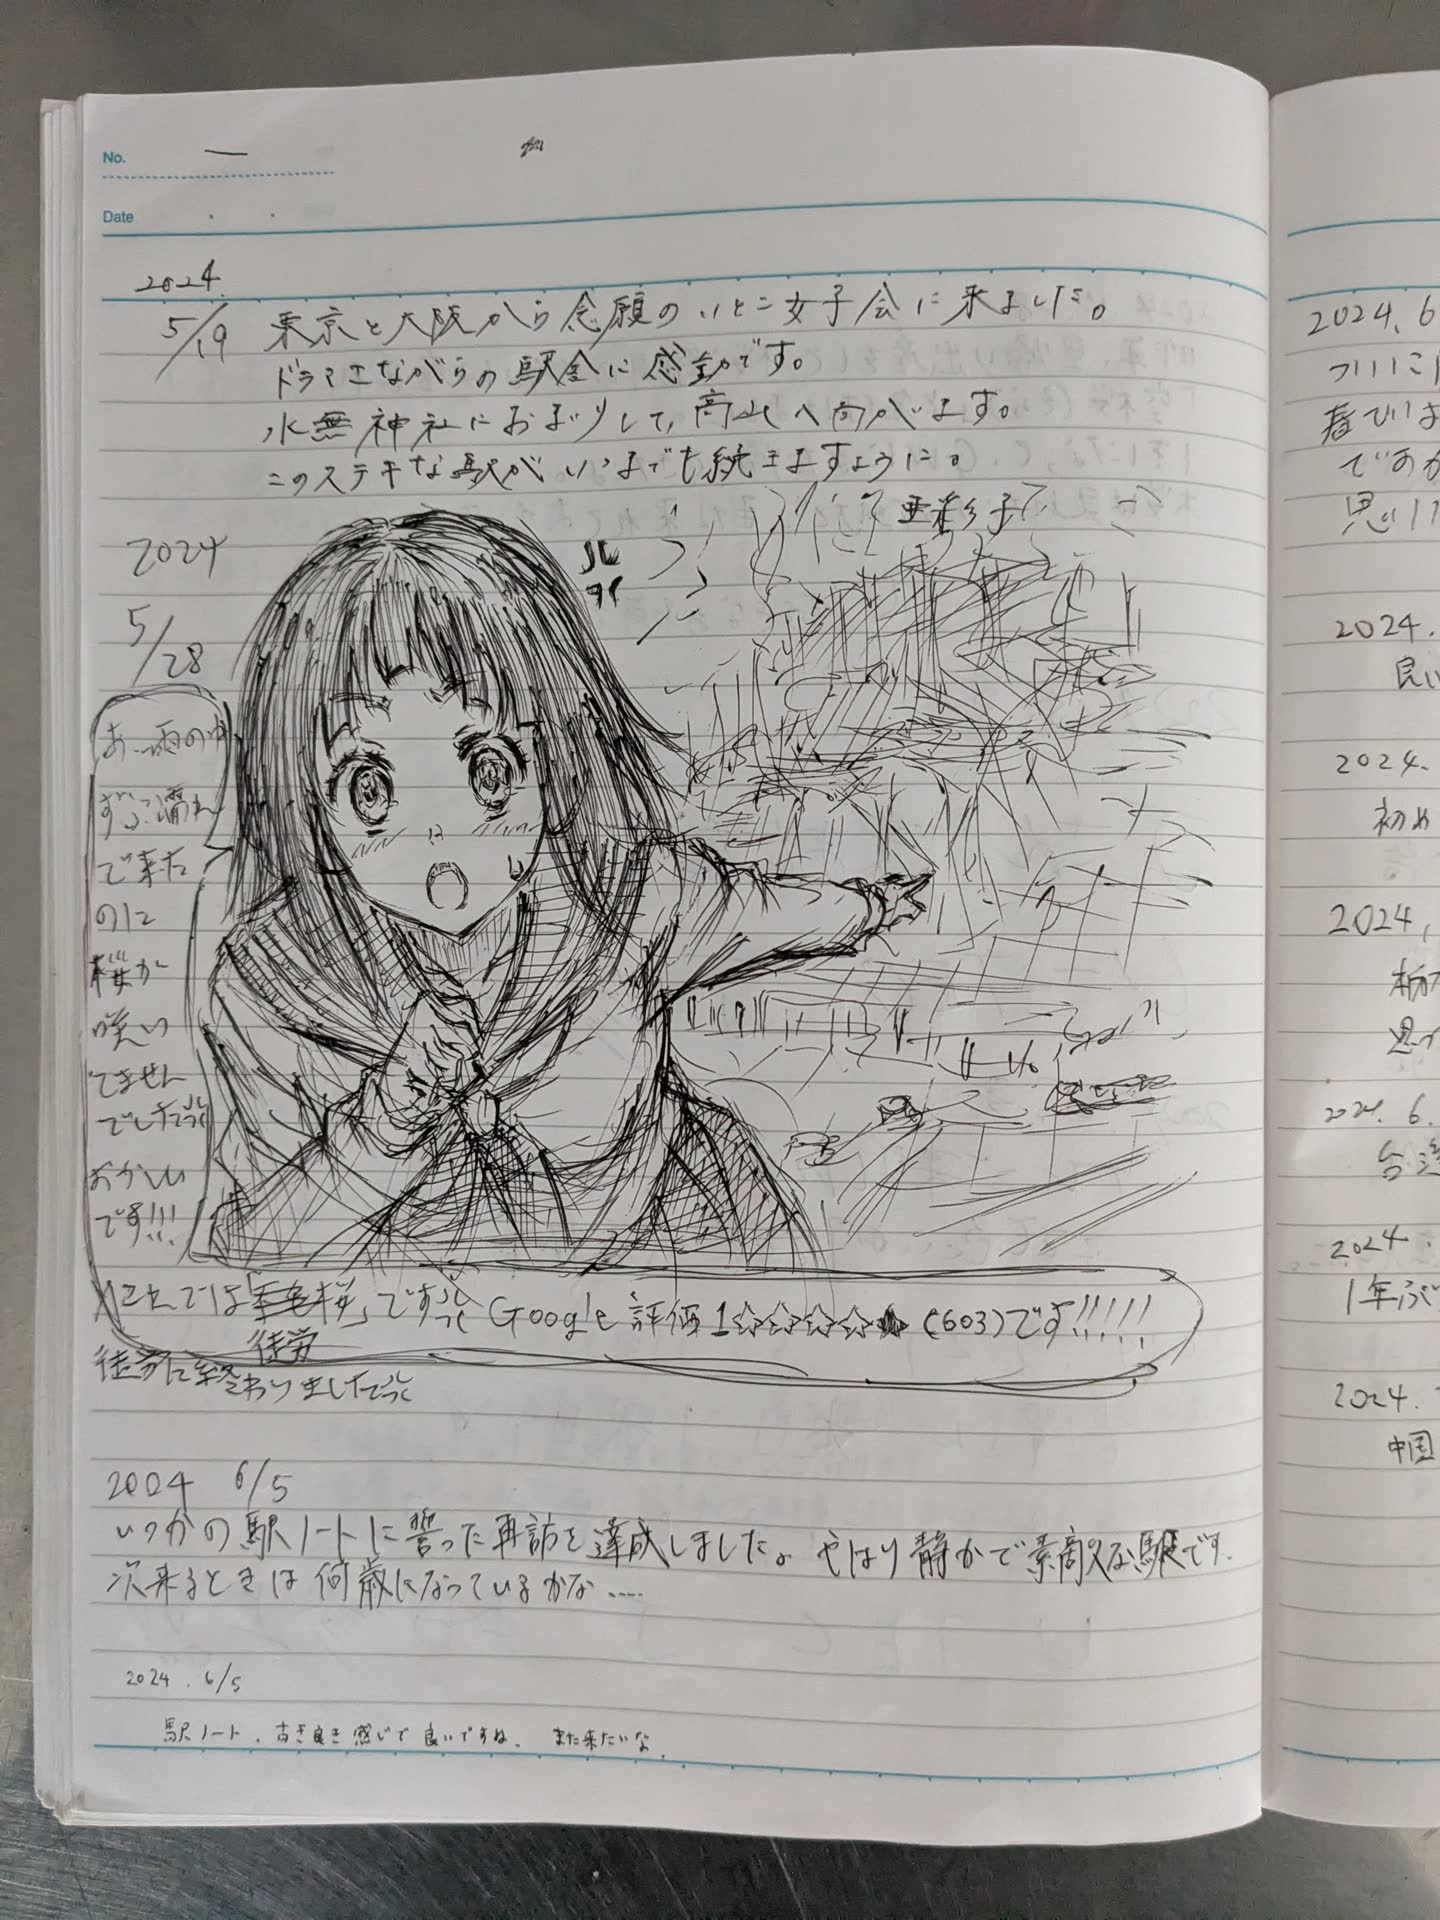 No.
Date
2024
5/19 東京と大阪から念願のいとこ女子会に来ました。
ドラマさながらの駅舎に感動です。
水無神社におまいりして、高山へ向かいます。
このステキな駅がいつまでも続きますように。
亜彩子
2024
5/28
あ、雨の中
ずぶ濡れ
で来た
のに
桜が
咲い
てません
でした
おかしい
です!!!
これでは「
桜」です
Google 評価 1☆☆☆☆★ (603)です!!!!!
徒労
徒労に終わりました
2024 6/5
いつかの駅ノートに誓った再訪を達成しました。やはり静かで素敵な駅です.
次来るときは何歳になっているかな……
2024. 6/5
駅ノート、古き良き感じで良いですね。また来たいな。
2024. 6
ついに
思い
2024.
良い
2024.
初め
2024,
2024. 6.
台湾
2024.
1年ぶり
2024.
中国